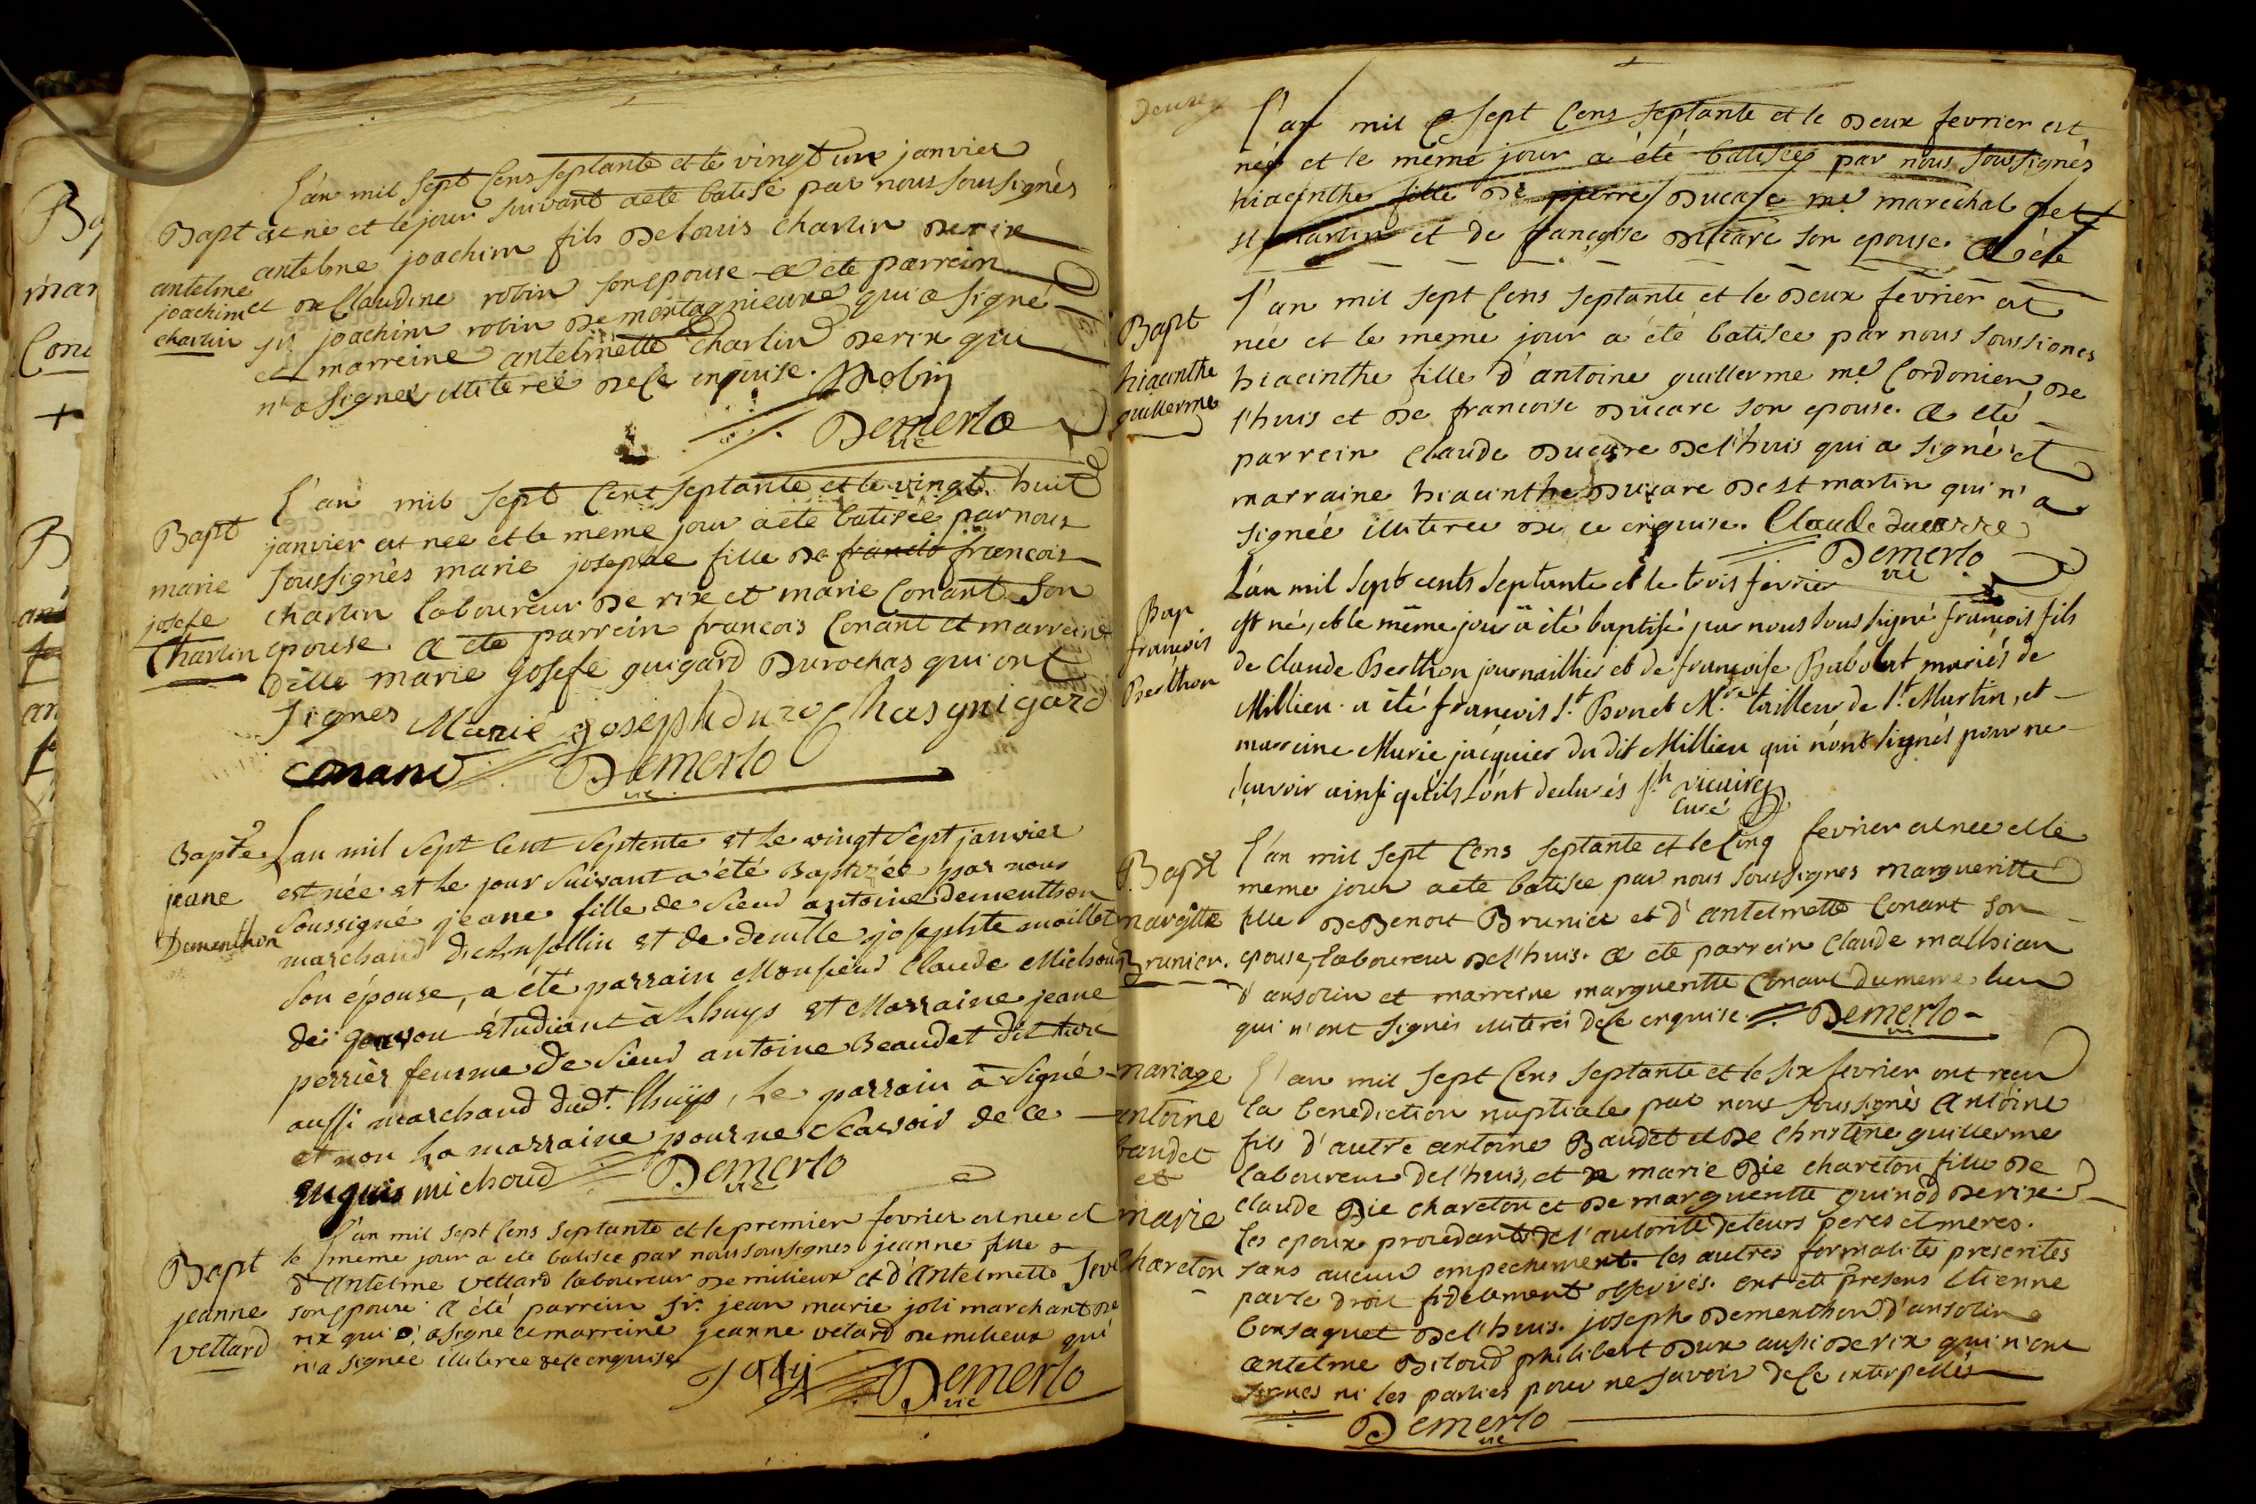 L'an mil sept cens septante et le vingt un janvier
Bapt est né et le jour suivant a eté batisé par nous soussignés
antelme antelme joachim fils de louis charlin de rix
joachim et de claudine robin son epouse a eté parrein
charlin sr joachim robin de montagnieure qui a signé
et marreine antelmette charlin de rix qui
n'a signée illiterée de ce enquise. Robin
Demerlo
vic
L'an mil sept cent septante et le vingt huit
Bapt janvier est née et le meme jour a eté batisée par nous
marie soussignés marie josephe fille de francois
josefe charlin laboureur de rix et marie Conant son
Charlin epouse a eté parrein francois Conant et marreine
dlle marie josefe guigard durochas qui ont
signes Marie joseph durochas guigard
conand Demerlo
vic
Bapte Lan mil sept cent septente et le vingt sept janvier
jeane est née et le jour suivant a été Baptizée par nous
Dementhon soussigné jeane fille de sieur antoine dementhon
marchand d'ansollin et de demlle josephte maillet
son épouse, a été parrain Monsieur Claude Michoud
étudiant à Lhuys et Marraine jeane
perrier femme de sieur antoine Beaudet dit
aussi marchand dudt. Lhuys, le parrain à signé
et non la marraine pour ne scavoir de ce
enquis michoud Demerlo
vic
L'an mil sept cens septante et le premier fevrier est née et
Bapt le meme jour a eté batisée par nous soussignes jeanne fille
d'antelme vettard laboureur de milieux et d'antelmette
jeanne son epouse a été parrein sr. jean marie joli marchant de
vettard rix qui a signé et marreine jeanne vetard de milieux qui
n'a signée illiterée de ce enquise
Joly Demerlo
vic
L'an mil sept cens septante et le deux fevrier est
née et le même jour a été batisée par nous soussignés
hiacinthe fille de pierre ducare me marechal de
st martin et de françoise ducare son epouse. a été
L'an mil sept cens septante et le deux fevrier est
Bapt née et le meme jour a été batisée par nous soussignes
hiacinthe hiacinthe fille d'antoine guillerme me cordonier de
guillerme l'huis et de francoise ducare son epouse. a eté
parrein claude ducare de l'huis qui a signé et
marraine hiacinthe ducare de st martin qui n'a
signée illiteree de ce enquise. Claude ducarre
Demerlo
vic
L'an mil sept cents septante et le trois fevrier
Bap est né, et le même jour a été baptisé par nous sous signé françois fils
francois de claude Berthon journaillier et de françoise Babolat mariés de
Berthon Millieu. a été françois St. Bonet Mre tailleur de St. Martin, et
marreine Marie jacquier du dit Millieu qui n'ont signés pour ne
sçavoir ainsi qu'ils l'ont declarés
curé
L'an mil sept cens septante et le cinq fevrier est née et le
Bapt meme jour a eté batisée par nous soussignes margueritte
margtte fille de Benoit Brunier et d'antelmette Conant son
Brunier. epouse, laboureur de l'huis. a eté parrein claude mathian
d'ansolin et marreine margueritte Conant du meme lieu
qui n'ont signés illiterés de ce enquise. Demerlo
vic
mariage L'an mil sept cens septante et le six fevrier ont reçu
antoine la benediction nuptiale par nous soussignés antoine
baudet fils d'autre antoine Baudet et de christine guillerme
et laboureur de l'huis, et marie Die chareton fille de
marie claude Die chareton et de margueritte quinod de rix.
chareton les epoux procedant de l'autorité de leurs peres et meres.
sans aucun empechement. les autres formalités presentes
par le droit fidelement observés. ont eté presens etienne
bonsaquet de l'huis. joseph dementhon d'ansolin
antelme philibert dux aussi de rix qui n'ont
signes ni les parties pour ne savoir de ce interpellés
Demerlo
vic